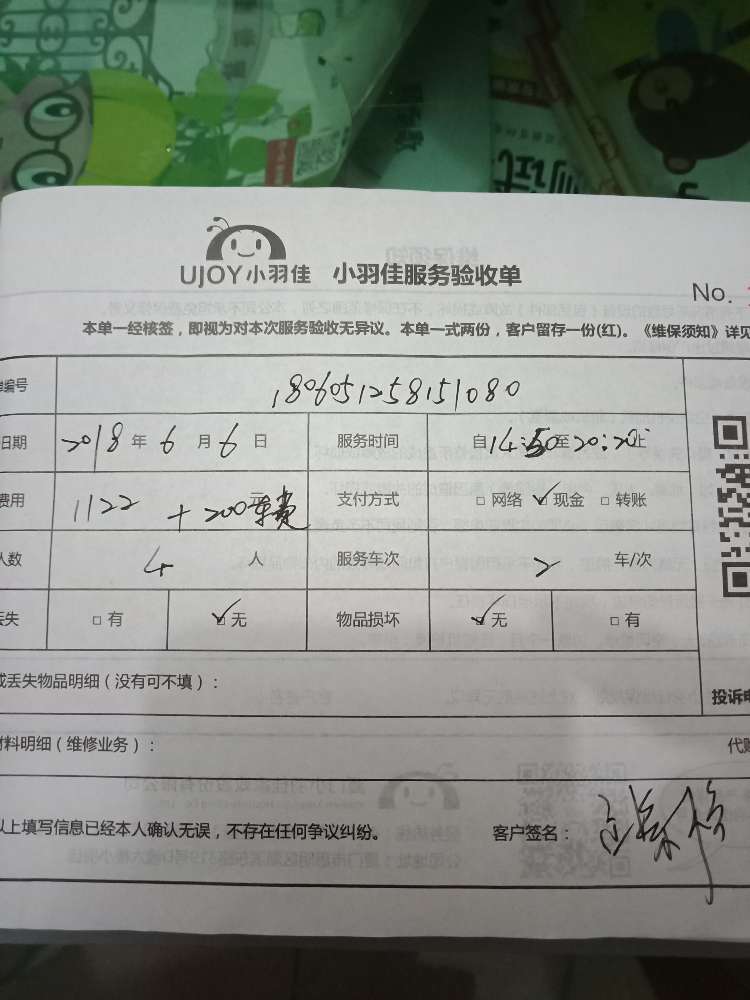 UJOY小羽佳 小羽佳服务验收单
No.
本单一经核签，即视为对本次服务验收无异议。本单一式两份，客户留存一份(红)。《维保须知》详见
编号 1806051258151080
日期 2018 年 6 月 6 日 服务时间 自 14:50 至 20:20 止
费用 1122 元 + 200车费 支付方式 □ 网络 ☑ 现金 □ 转账
人数 4 人 服务车次 2 车/次
丢失 □ 有 ☑ 无 物品损坏 ☑ 无 □ 有
或丢失物品明细（没有可不填）：
投诉电
材料明细（维修业务）：
代购
以上填写信息已经本人确认无误，不存在任何争议纠纷。 客户签名：